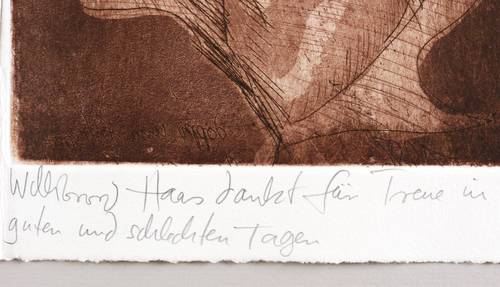 Willibrord Haas dankt für Treue in
guten und schlechten Tagen